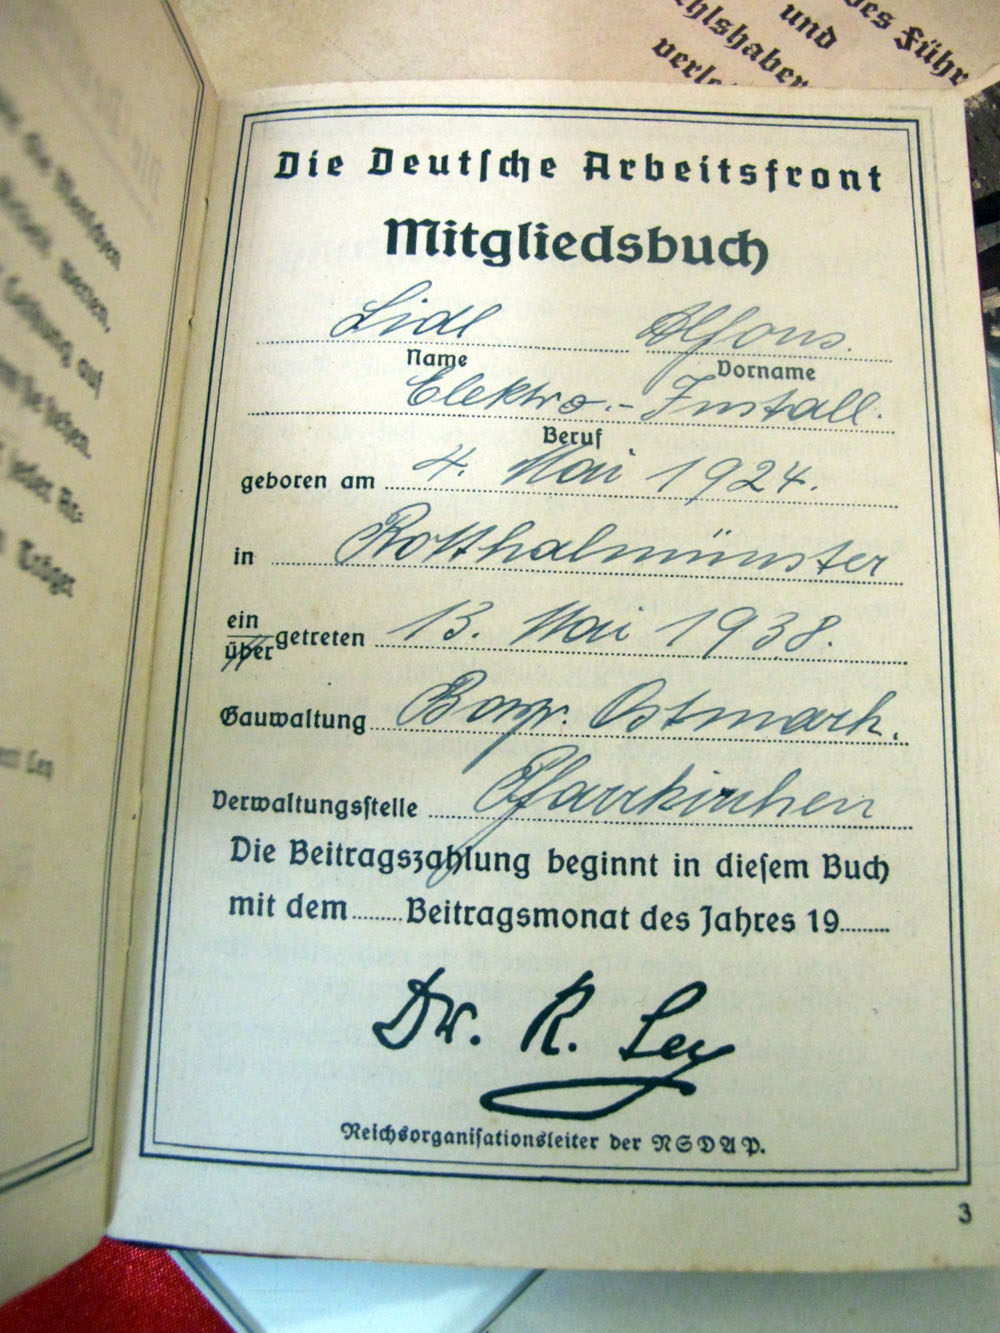 des Führ
und
verl
Die Deutſche Arbeitsfront
Mitgliedsbuch
Lidl Alfons.
Name Vorname
Elektro.-Install.
Beruf
geboren am 4. Mai 1924.
in Rotthalmünster
ein
über getreten 13. Mai 1938.
Gauwaltung Bayr. Ostmark.
Verwaltungsſtelle Pfarrkirchen
Die Beitragszahlung beginnt in dieſem Buch
mit dem........Beitragsmonat des Jahres 19........
Dr. R. Ley
Reichsorganiſationsleiter der NSDAP.
3